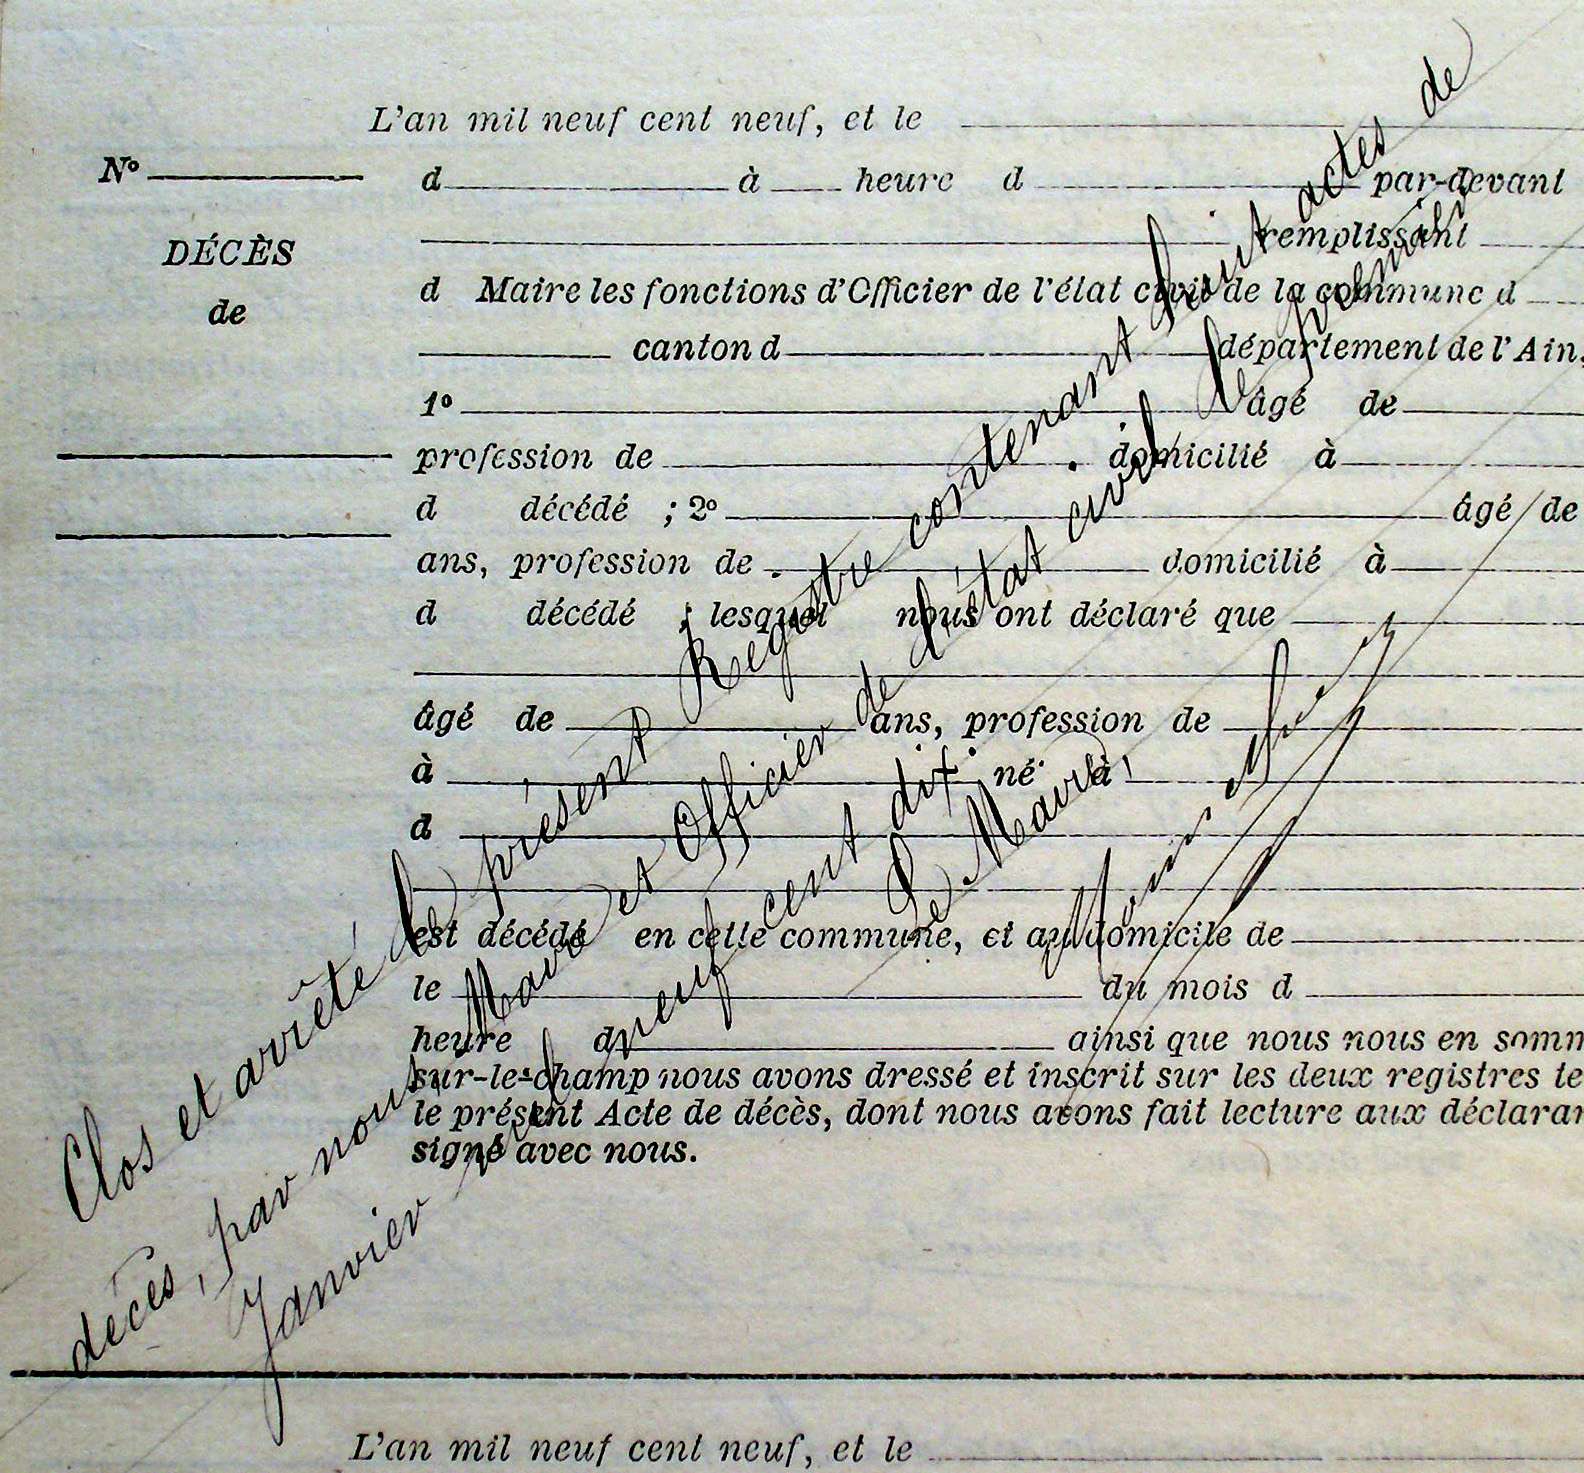 L'an mil neuf cent neuf, et le
N° d à heure d par-devant
DÉCÈS remplissant
de d Maire les fonctions d'Officier de l'état civil de la commune d
canton d département de l'Ain,
1° âgé de
profession de domicilié à
d décédé ; 2° âgé de
ans, profession de domicilié à
d décédé ; lesquel nous ont déclaré que
âgé de ans, profession de
à né à
d
est décédé en cette commune, et au domicile de
le du mois d
heure d ainsi que nous nous en somm
sur-le-champ nous avons dressé et inscrit sur les deux registres te
le présent Acte de décès, dont nous avons fait lecture aux déclaran
signé avec nous.
Clos et arrêté le présent Registre contenant huit actes de
décès, par nous, Maire et Officier de l'état civil le premier
Janvier mil neuf cent dix.
Le Maire,
L'an mil neuf cent neuf, et le